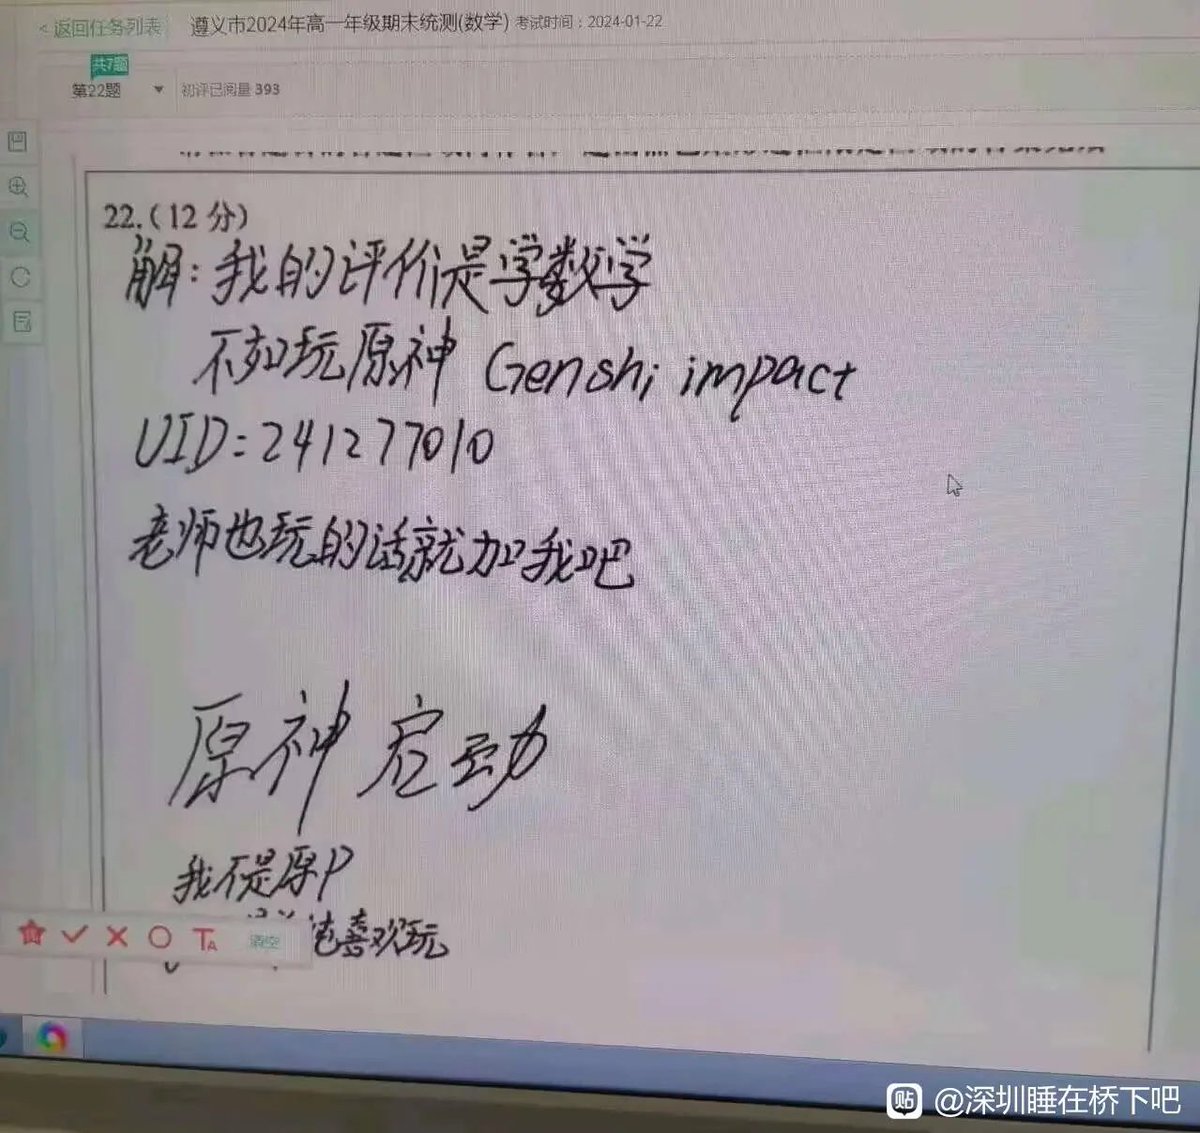 < 返回任务列表 遵义市2024年高一年级期末统测(数学) 考试时间：2024-01-22
共7题
第22题 ▼ 初评已阅量 393
22.(12 分)
解：我的评价是学数学
不如玩原神 Genshi impact
UID=241277010
老师也玩的话就加我吧
原神 启动
我不是原P
喜欢玩
清空
贴 @深圳睡在桥下吧